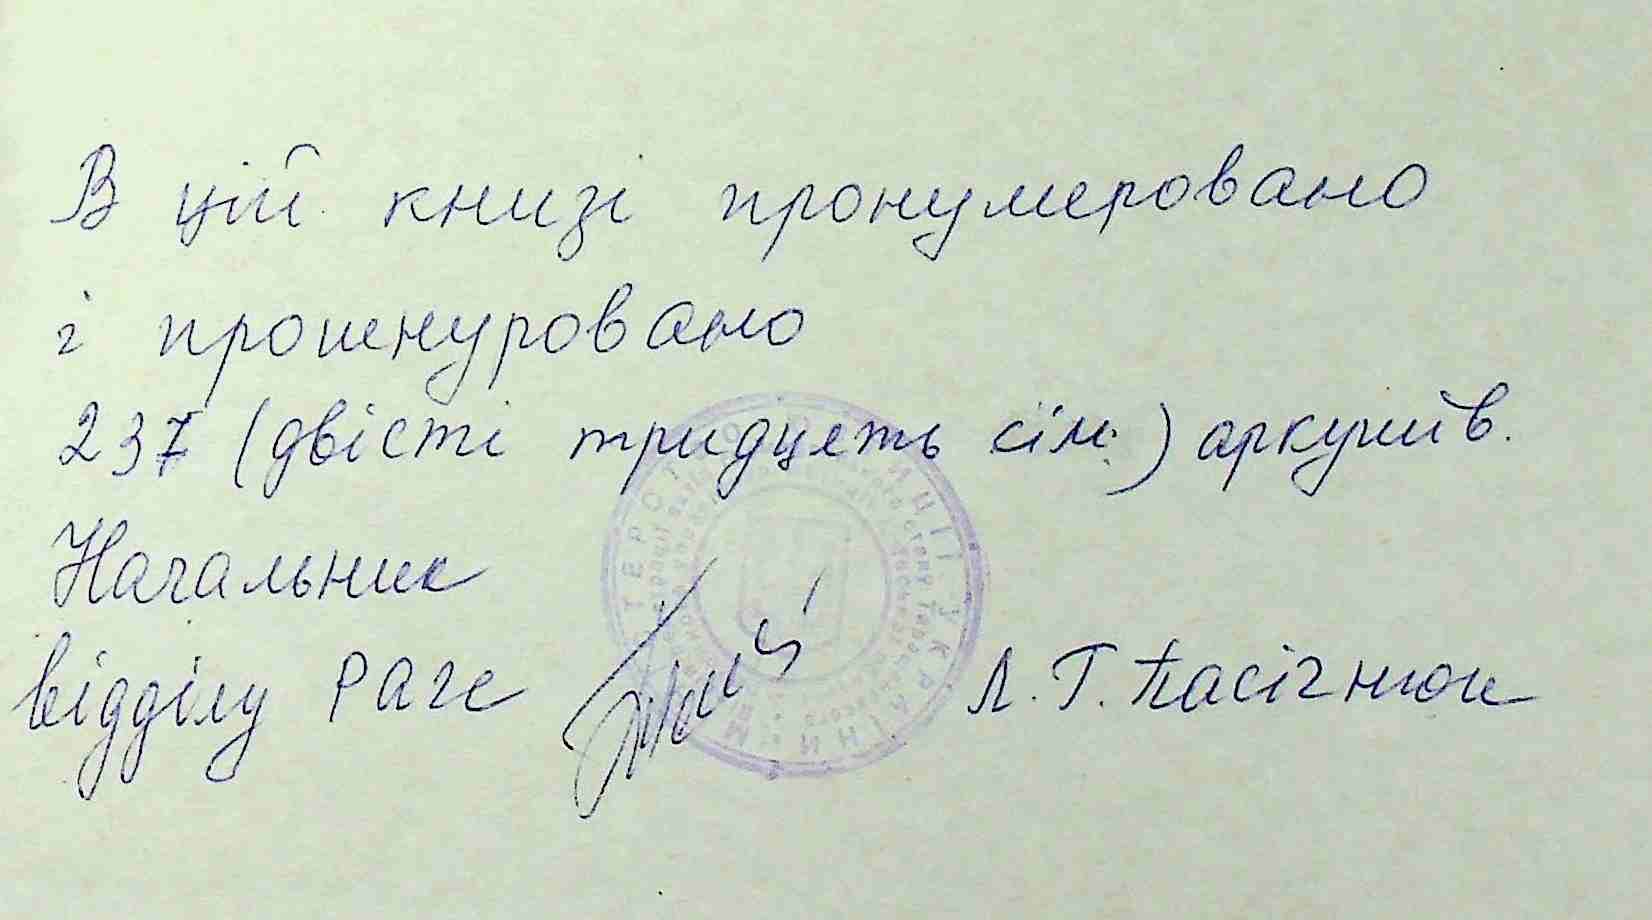 В цій книзі пронумеровано
і прошнуровано
237 (двісті тридцять сім) аркушів.
Начальник
відділу РАГС Л. Г. Пасічнюк
ЮСТИЦІЇ УКРАЇНИ